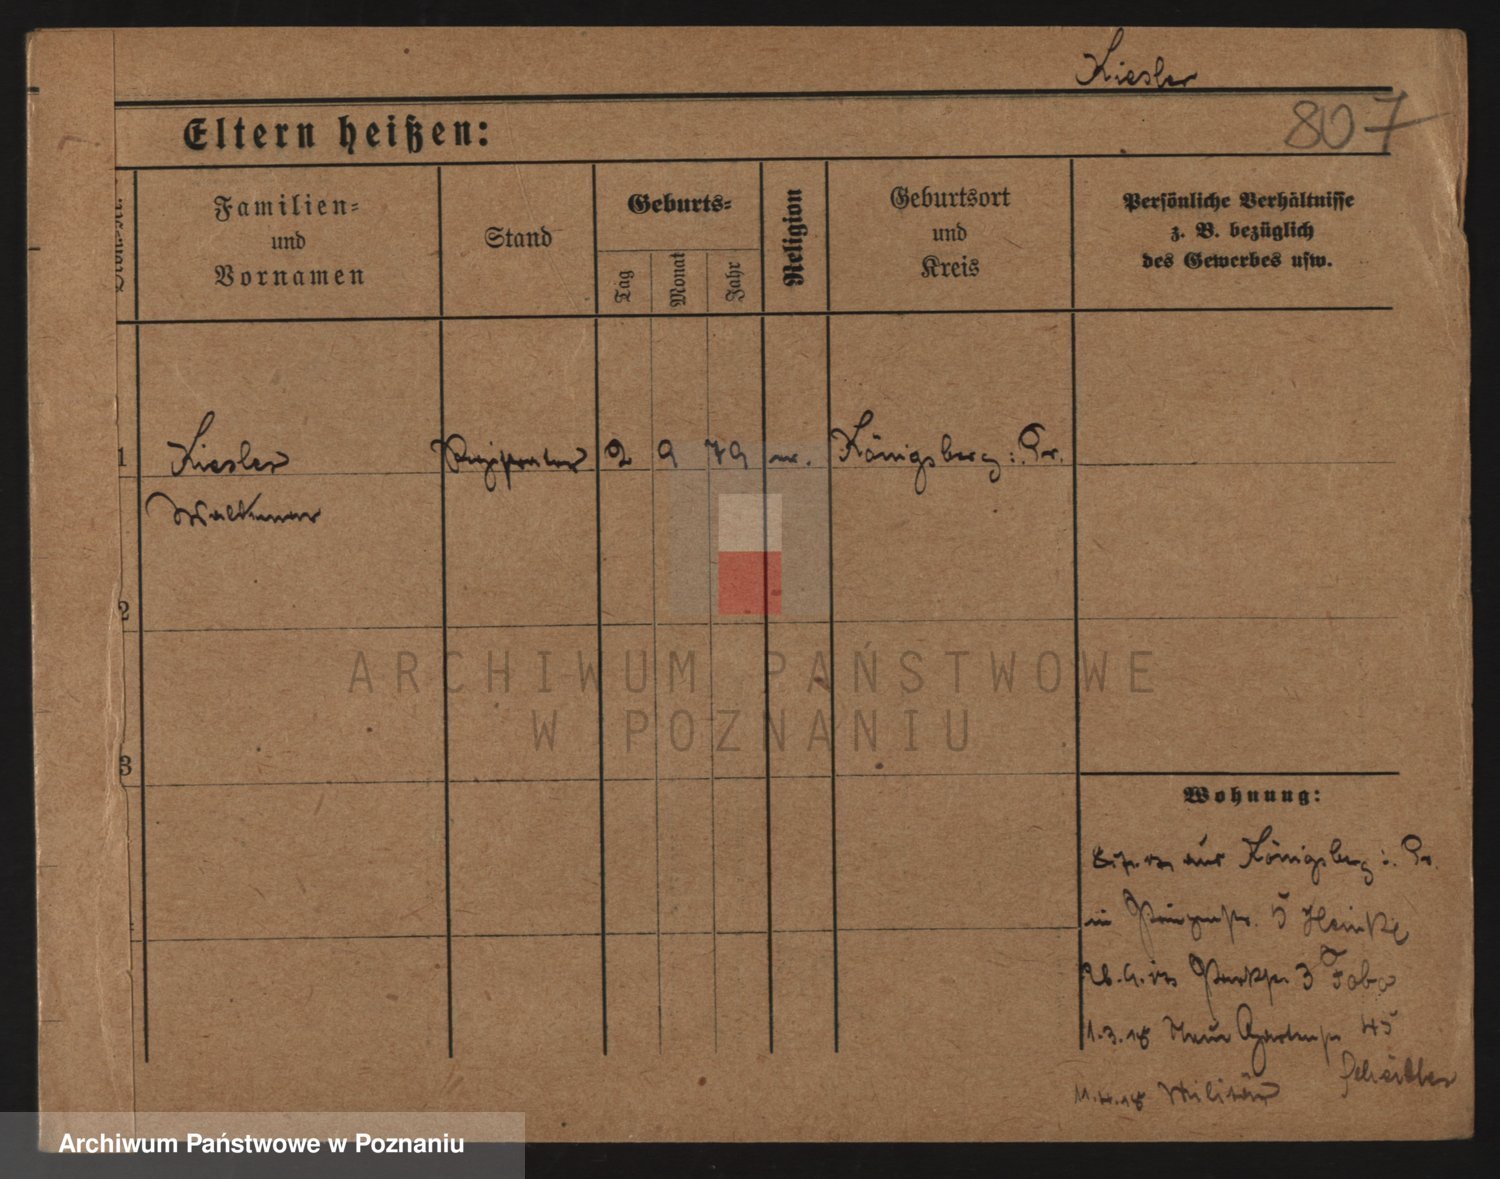 Kiesler
807
Eltern heißen:
Familien-
und
Vornamen
Stand
Geburts-
Tag
Monat
Jahr
Religion
Geburtsort
und
Kreis
Persönliche Verhältnisse
z. B. bezüglich
des Gewerbes usw.
1 Kiesler Registrator 2 9 79 ev. Königsberg i. Pr.
Waldemar
2
3
ARCHIWUM PAŃSTWOWE
W POZNANIU
Wohnung:
aus Königsberg i. Pr.
in Prinzenstr. 5
3
1.3.18 Neue Gartenstr 45
11.4.18 Militär
Archiwum Państwowe w Poznaniu